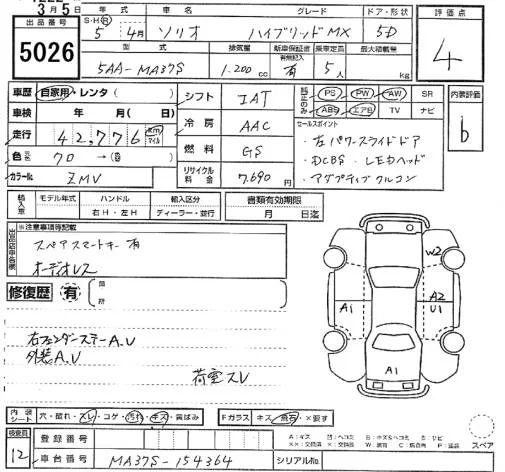 3月5日
出品番号
5026
年式 車名 グレード ドア・形状
S・H・R 5年 4月 ソリオ ハイブリッドMX 5D
型式 排気量 新車保証書 有無記入 乗車定員 最大積載量
5AA-MA37S 1,200cc 有 5人 kg
評価点
4
車歴 自家用・レンタ( )
車検 年 月( 日)
走行 42,776 km マイル
色 70→( )
カラー№ ZMV
シフト IAT
冷房 AAC
燃料 GS
リサイクル料金 7,690円
純正のみ PS PW AW SR
ABS エアB TV ナビ
セールスポイント
・左パワースライドドア
・DCBS ・LEDヘッド
・アダプティブクルコン
内装評価
b
輸入車 モデル年式 ハンドル 輸入区分
年 右H・左H ディーラー・並行
書類有効期限
月 日迄
※注意事項等記載
スペアスマートキー有
オーディオレス
修復歴 有 箇所
右フェンダーステーA.U
外装A.U
荷室スレ
W2
A1
A2
U1
A1
内装シート 穴・破れ・スレ・コゲ・汚れ・キズ・黄ばみ
Fガラス キズ・飛石・×要す
スペア
検査員
12
登録番号
車台番号 MA37S-154364
シリアル№